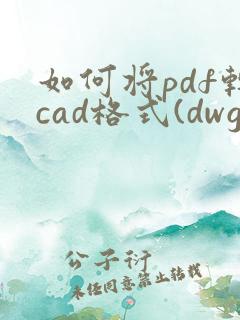 如何将pdf转
cad格式(dwg
公子衍
未经同意禁止转载